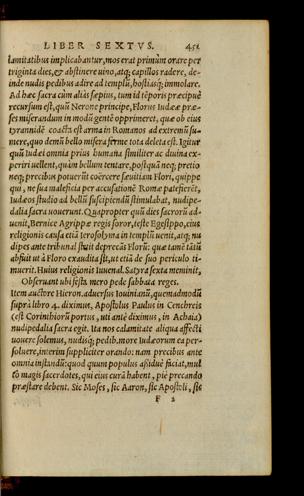 LIBER SEXTVS. 451
lamitatibus implicabantur, mos erat primùm orare per
triginta dies, & abstinere uino, atq; capillos radere, de-
inde nudis pedibus adire ad templũ, hostiasq; immolare.
Ad hæc sacra cùm aliâs sæpius, tum id tẽporis præcipuè
recursum est, quũ Nerone principe, Florus Iudeæ præ-
ses miserandum in modũ gentẽ opprimeret, quæ ob eius
tyrannidẽ coacta est arma in Romanos ad extremũ su-
mere, quo demũ bello misera ferme tota deleta est. Igitur
quũ Iudæi omnia prius humana similiter ac diuina ex-
periri uellent, quàm bellum tentare, postquã neq; pretio
neq; precibus potuerũt coërcere sæuitiam Flori, quippe
qui, ne sua maleficia per accusationẽ Romæ patefierẽt,
Iudæos studio ad bellũ suscipiendũ stimulabat, nudipe-
dalia sacra uouerunt. Quapropter quũ dies sacrorũ ad-
uenit, Bernice Agrippæ regis soror, teste Egesippo, eius
religionis causa etiã Ierosolyma in templũ uenit, atq; nu
dipes ante tribunal stetit deprecãs Florũ: quæ tamẽ tãtũ
abfuit ut à Floro exaudita sit, ut etiã de suo periculo ti-
muerit. Huius religionis Iuuenal. Satyra sexta meminit,
Obseruant ubi festa mero pede sabbata reges.
Item auctore Hieron. aduersus Iouinianũ, quemadmodũ
suprà libro 4. diximus, Apostolus Paulus in Cenchreis
(est Corinthiorũ portus, uti antè diximus, in Achaia)
nudipedalia sacra egit. Ita nos calamitate aliqua affecti
uouere solemus, nudisq; pedib. more Iudæorum ea per-
soluere, interim suppliciter orando: nam precibus ante
omnia instandũ: quod quum populus assiduè faciat, mul
tò magis sacerdotes, qui eius curã habent, piè precando
præstare debent. Sic Moses, sic Aaron, sic Apostoli, sic
F 2